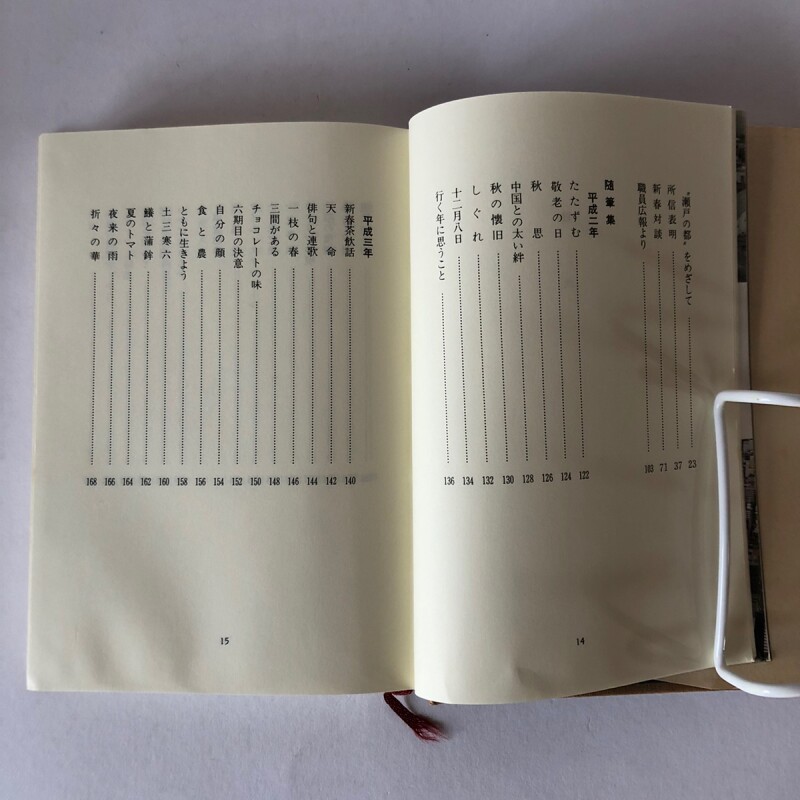 “瀬戸の都”をめざして 23
所信表明 37
新春対談 71
職員広報より 103
随筆集
平成二年
たたずむ 122
敬老の日 124
秋思 126
中国との太い絆 128
秋の懐旧 130
しぐれ 132
十二月八日 134
行く年に思うこと 136
14
平成三年
新春茶飲話 140
天命 142
俳句と連歌 144
一枝の春 146
三間がある 148
チョコレートの味 150
六期目の決意 152
自分の顔 154
食と農 156
ともに生きよう 158
土三寒六 160
鱶と蒲鉾 162
夏のトマト 164
夜来の雨 166
折々の華 168
15